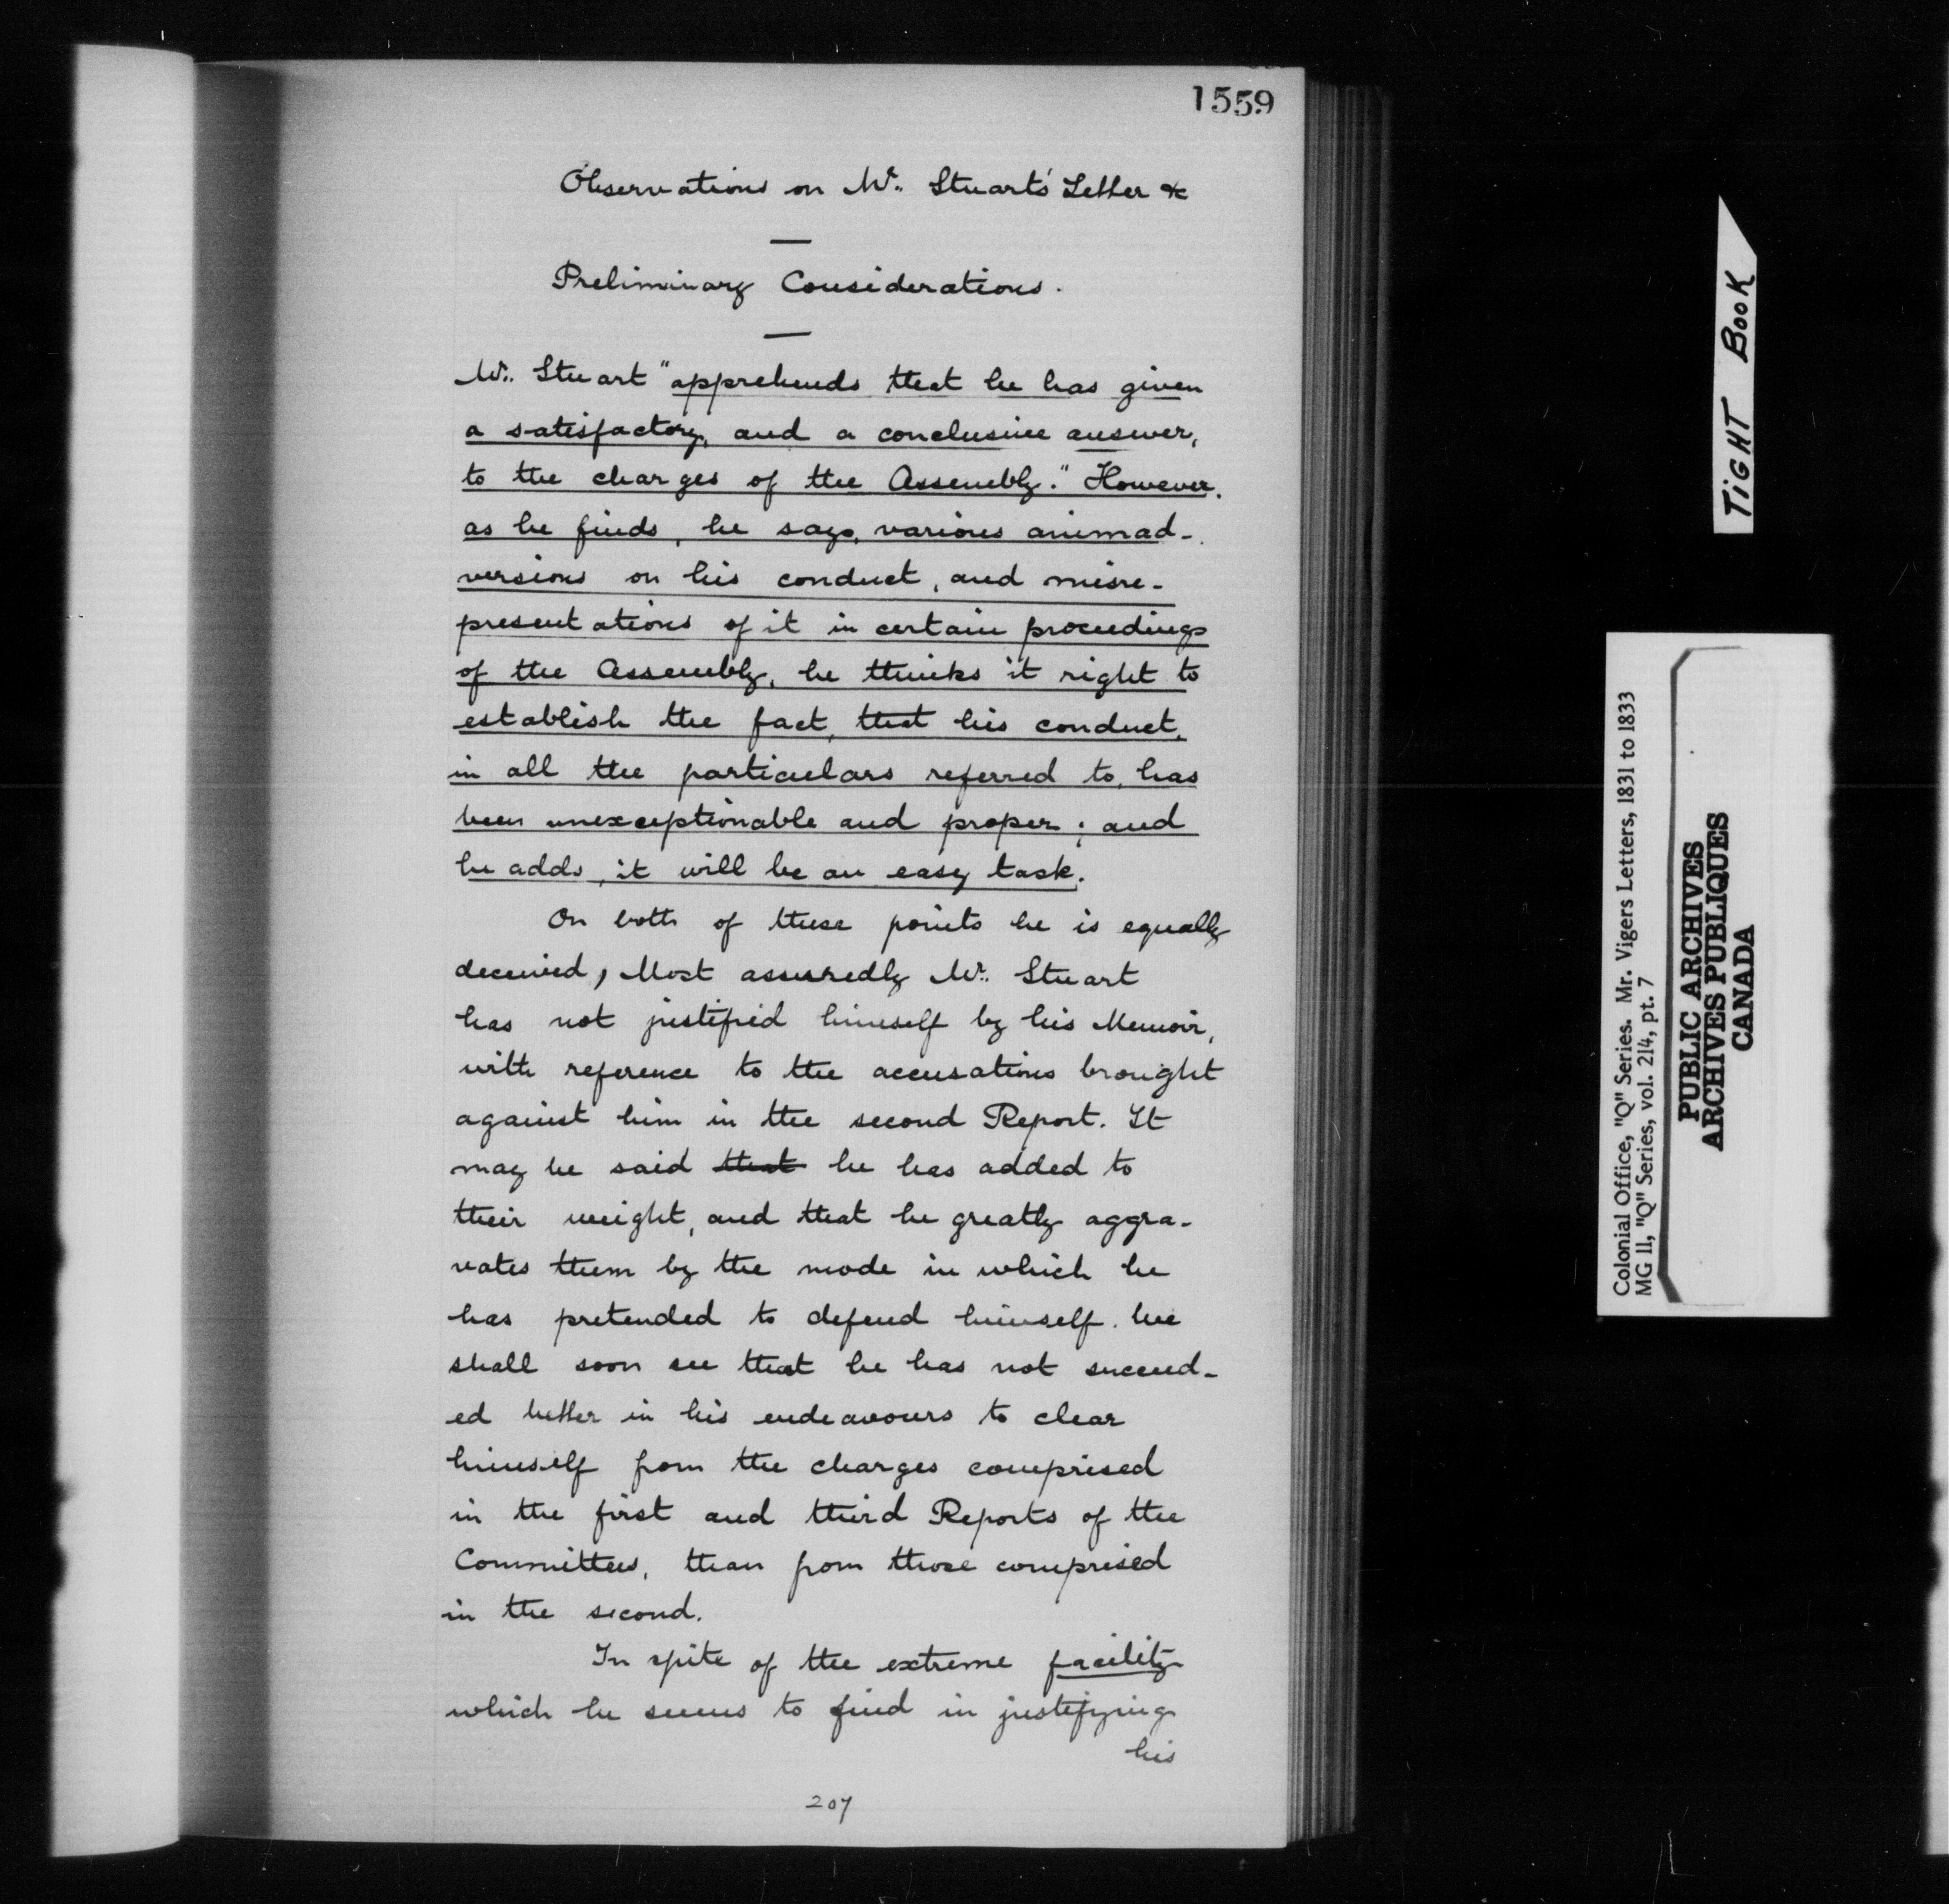 1559
Observations on Mr. Stuart's Letter &c
Preliminary Considerations.
Mr. Stuart "apprehends that he has given
a satisfactory, and a conclusive answer,
to the charges of the Assembly." However,
as he finds, he says, various animad-
versions on his conduct, and misre-
presentations of it in certain proceedings
of the Assembly, he thinks it right to
establish the fact, that his conduct,
in all the particulars referred to, has
been unexceptionable and proper; and
he adds, it will be an easy task.
On both of these points he is equally
deceived, Most assuredly Mr. Stuart
has not justified himself by his Memoir,
with reference to the accusations brought
against him in the second Report. It
may be said that he has added to
their weight, and that he greatly aggra-
vates them by the mode in which he
has pretended to defend himself. We
shall soon see that he has not succeed-
ed better in his endeavours to clear
himself from the charges comprised
in the first and third Reports of the
Committees, than from those comprised
in the second.
In spite of the extreme facility
which he seems to find in justifying
his
207
TIGHT BOOK
Colonial Office, "Q" Series. Mr. Vigers Letters, 1831 to 1833
MG 11, "Q" Series, vol. 214, pt. 7
PUBLIC ARCHIVES
ARCHIVES PUBLIQUES
CANADA